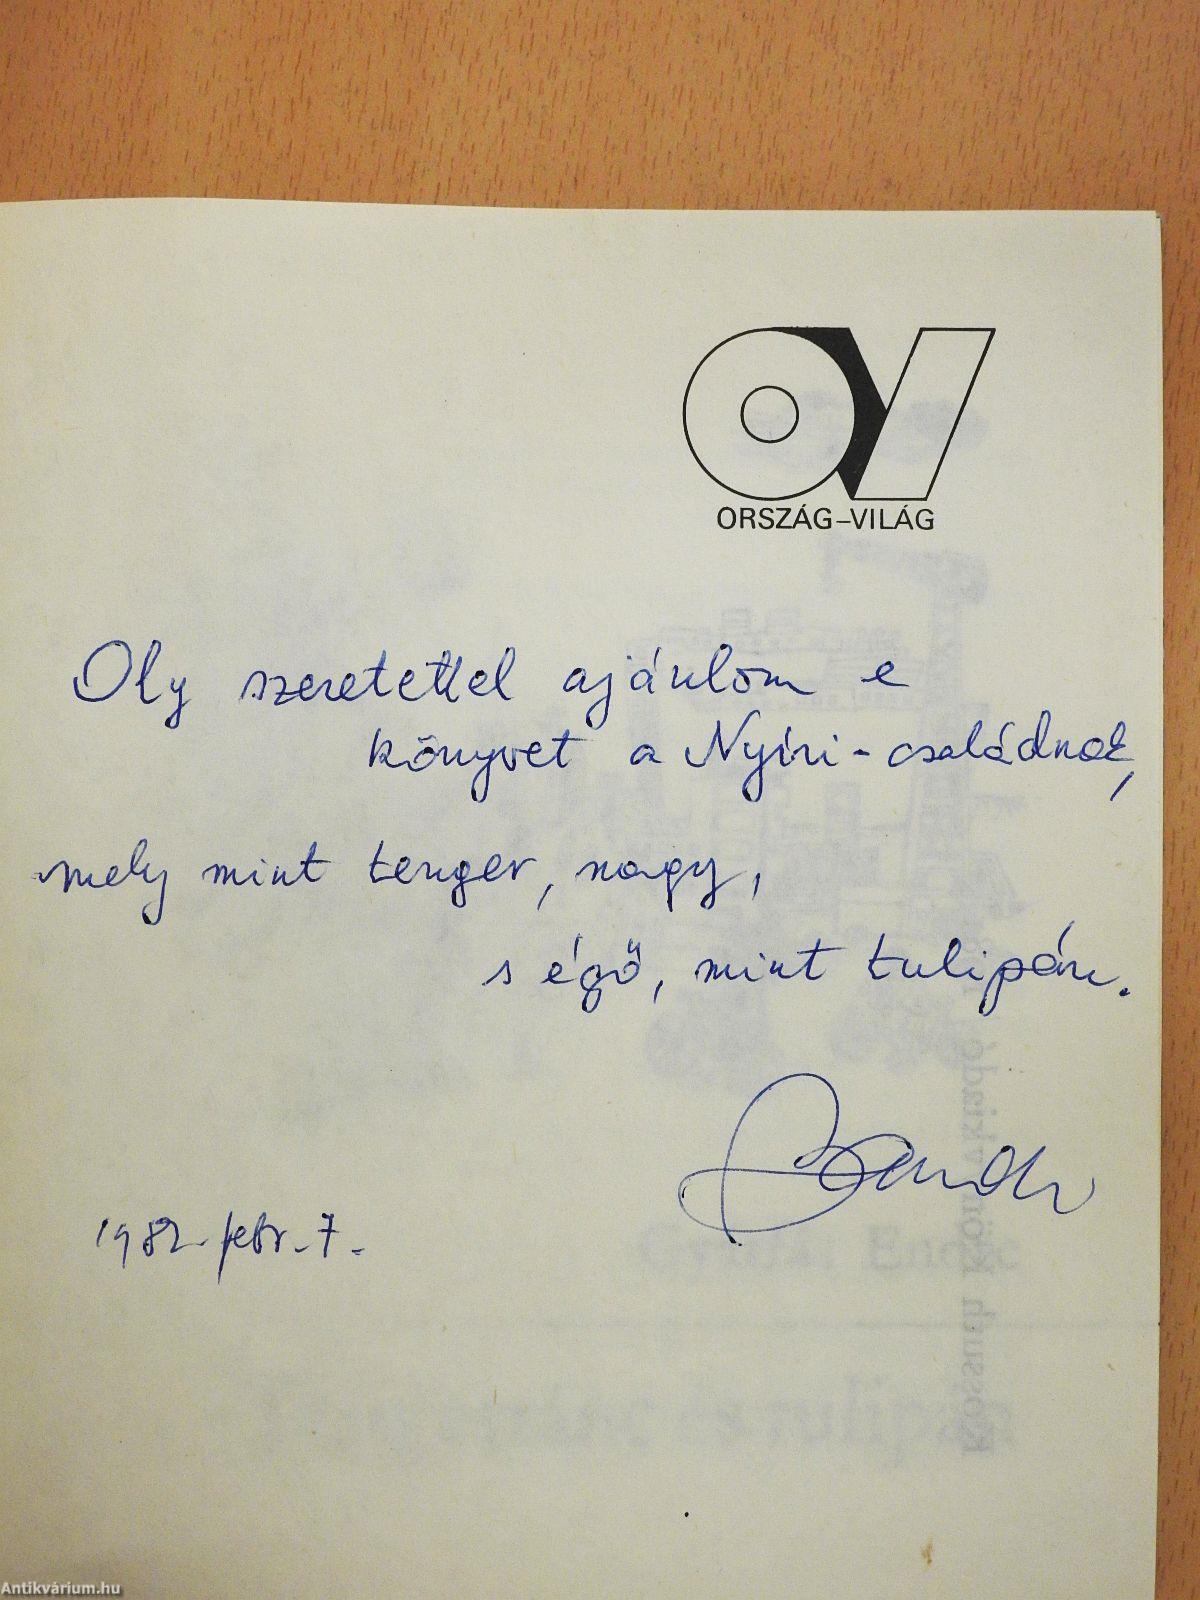 OV
ORSZÁG–VILÁG
Oly szeretettel ajánlom e
könyvet a Nyíri-családnak,
mely mint tenger, nagy,
s égő, mint tulipán.
1982. febr. 7.
Antikvárium.hu